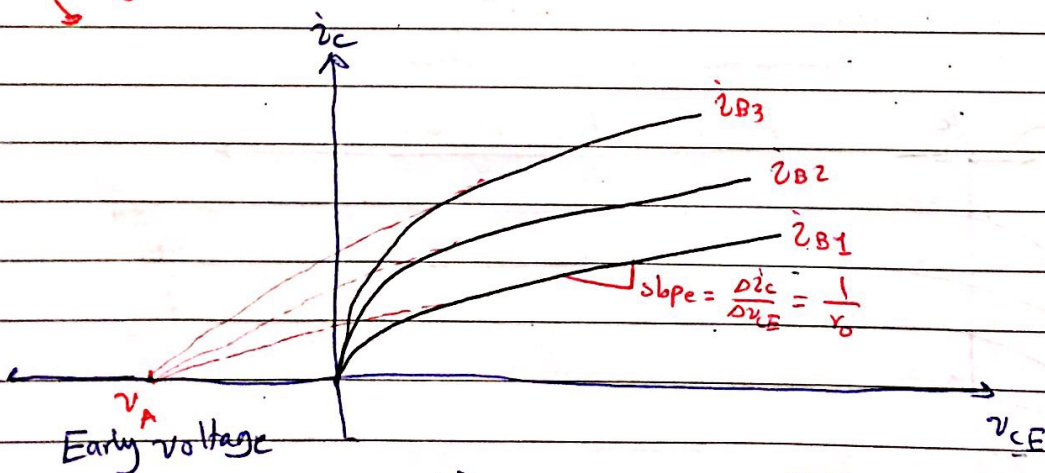 i_C
i_B3
i_B2
i_B1
slope = Δi_C/Δv_CE = 1/r_o
v_A
v_CE
Early voltage